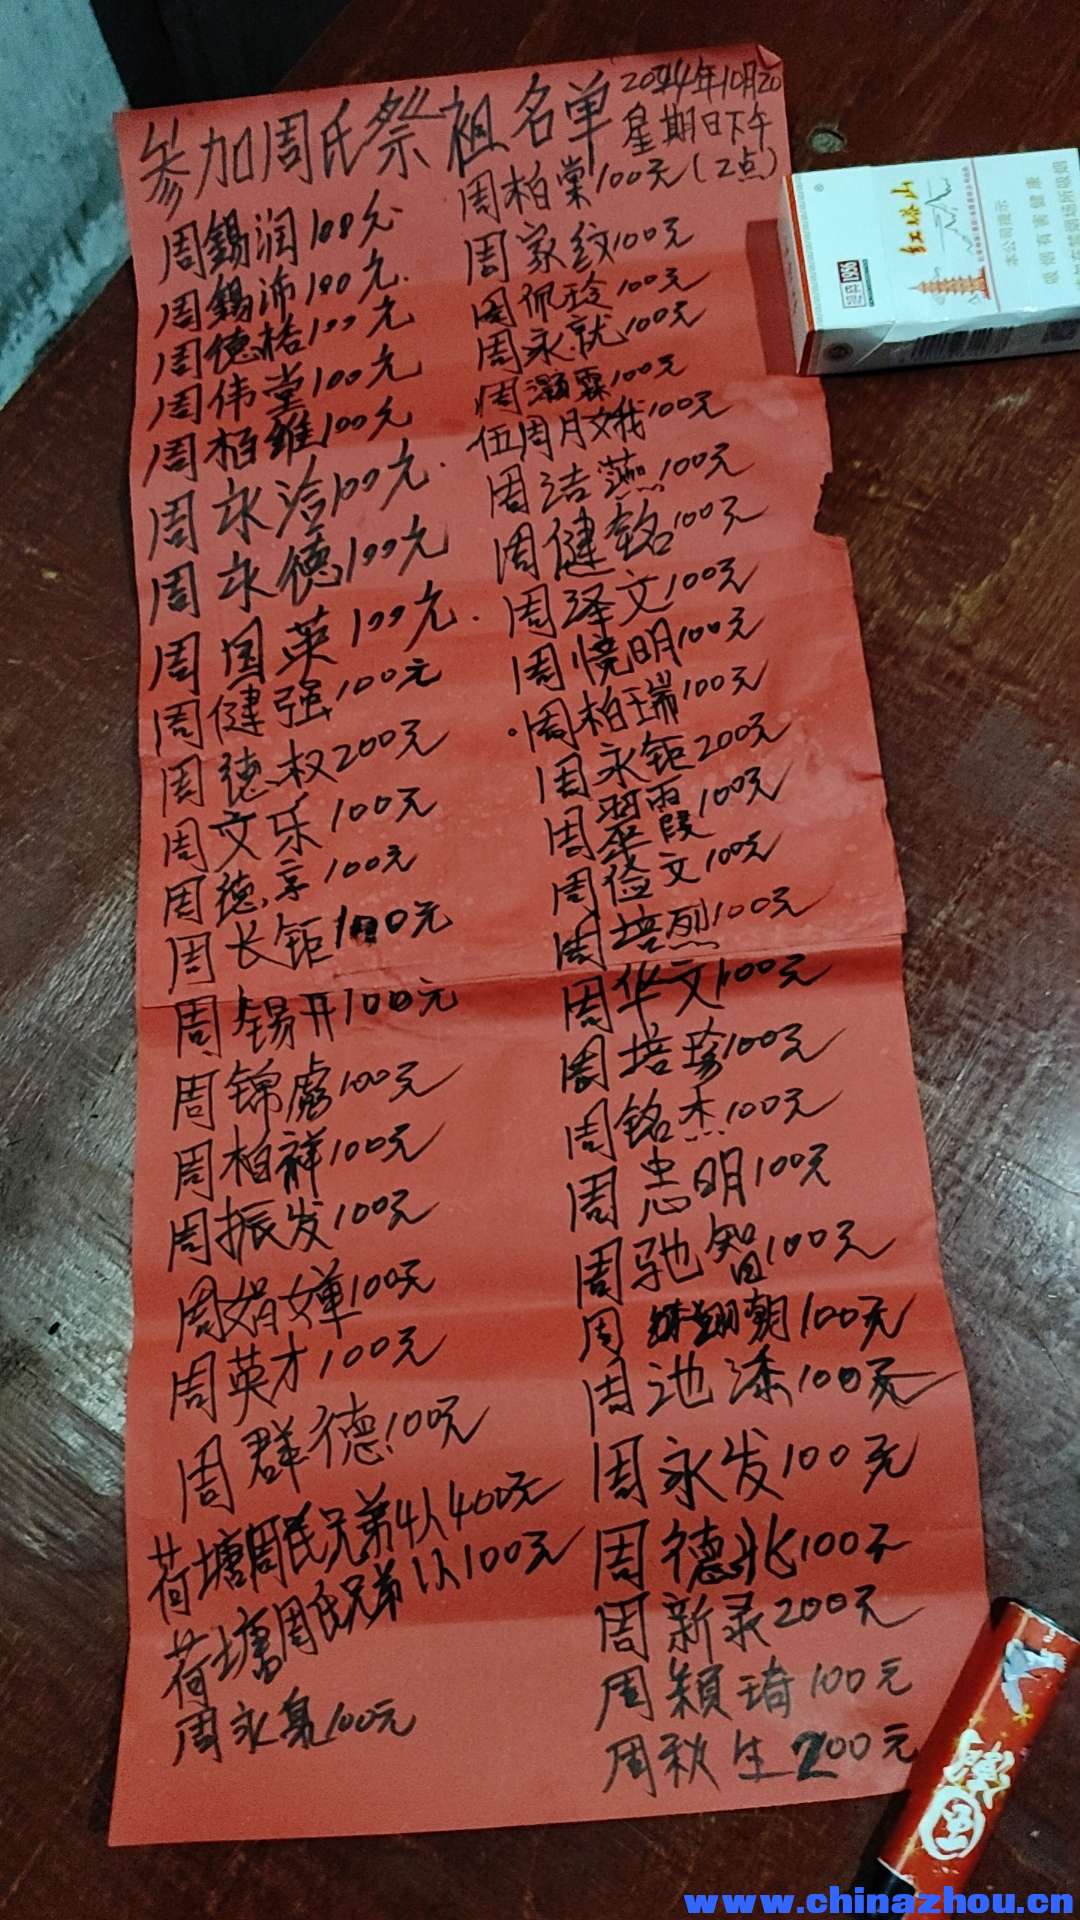 参加周氏祭祖名单
2024年10月20
星期日下午
(2点)
周锡润100元
周锡沛100元
周德梧100元
周伟堂100元
周柏维100元
周永洽100元
周永德100元
周国英100元
周健强100元
周德权200元
周文乐100元
周德享100元
周长钜100元
周锡开100元
周锦
100元
周柏祥100元
周振发100元
周娟婵100元
周英才100元
周群德100元
荷塘周氏兄弟4人400元
荷塘周氏兄弟1人100元
周永
100元
周柏棠100元
周家纹100元
周佩玲100元
周永就100元
周灏霖100元
伍周月娥100元
周洁燕100元
周健
100元
周泽文100元
周
明100元
周柏瑞100元
周永钜200元
周翠霞100元
周俭文100元
周培烈100元
周华文100元
周培珍100元
周铭杰100元
周忠明100元
周驰智100元
周
朝100元
周池添100元
周永发100元
周德兆100元
周新录200元
周颖琦100元
周秋生200元
红塔山
1956
本公司提示
吸烟有害健康
www.chinazhou.cn